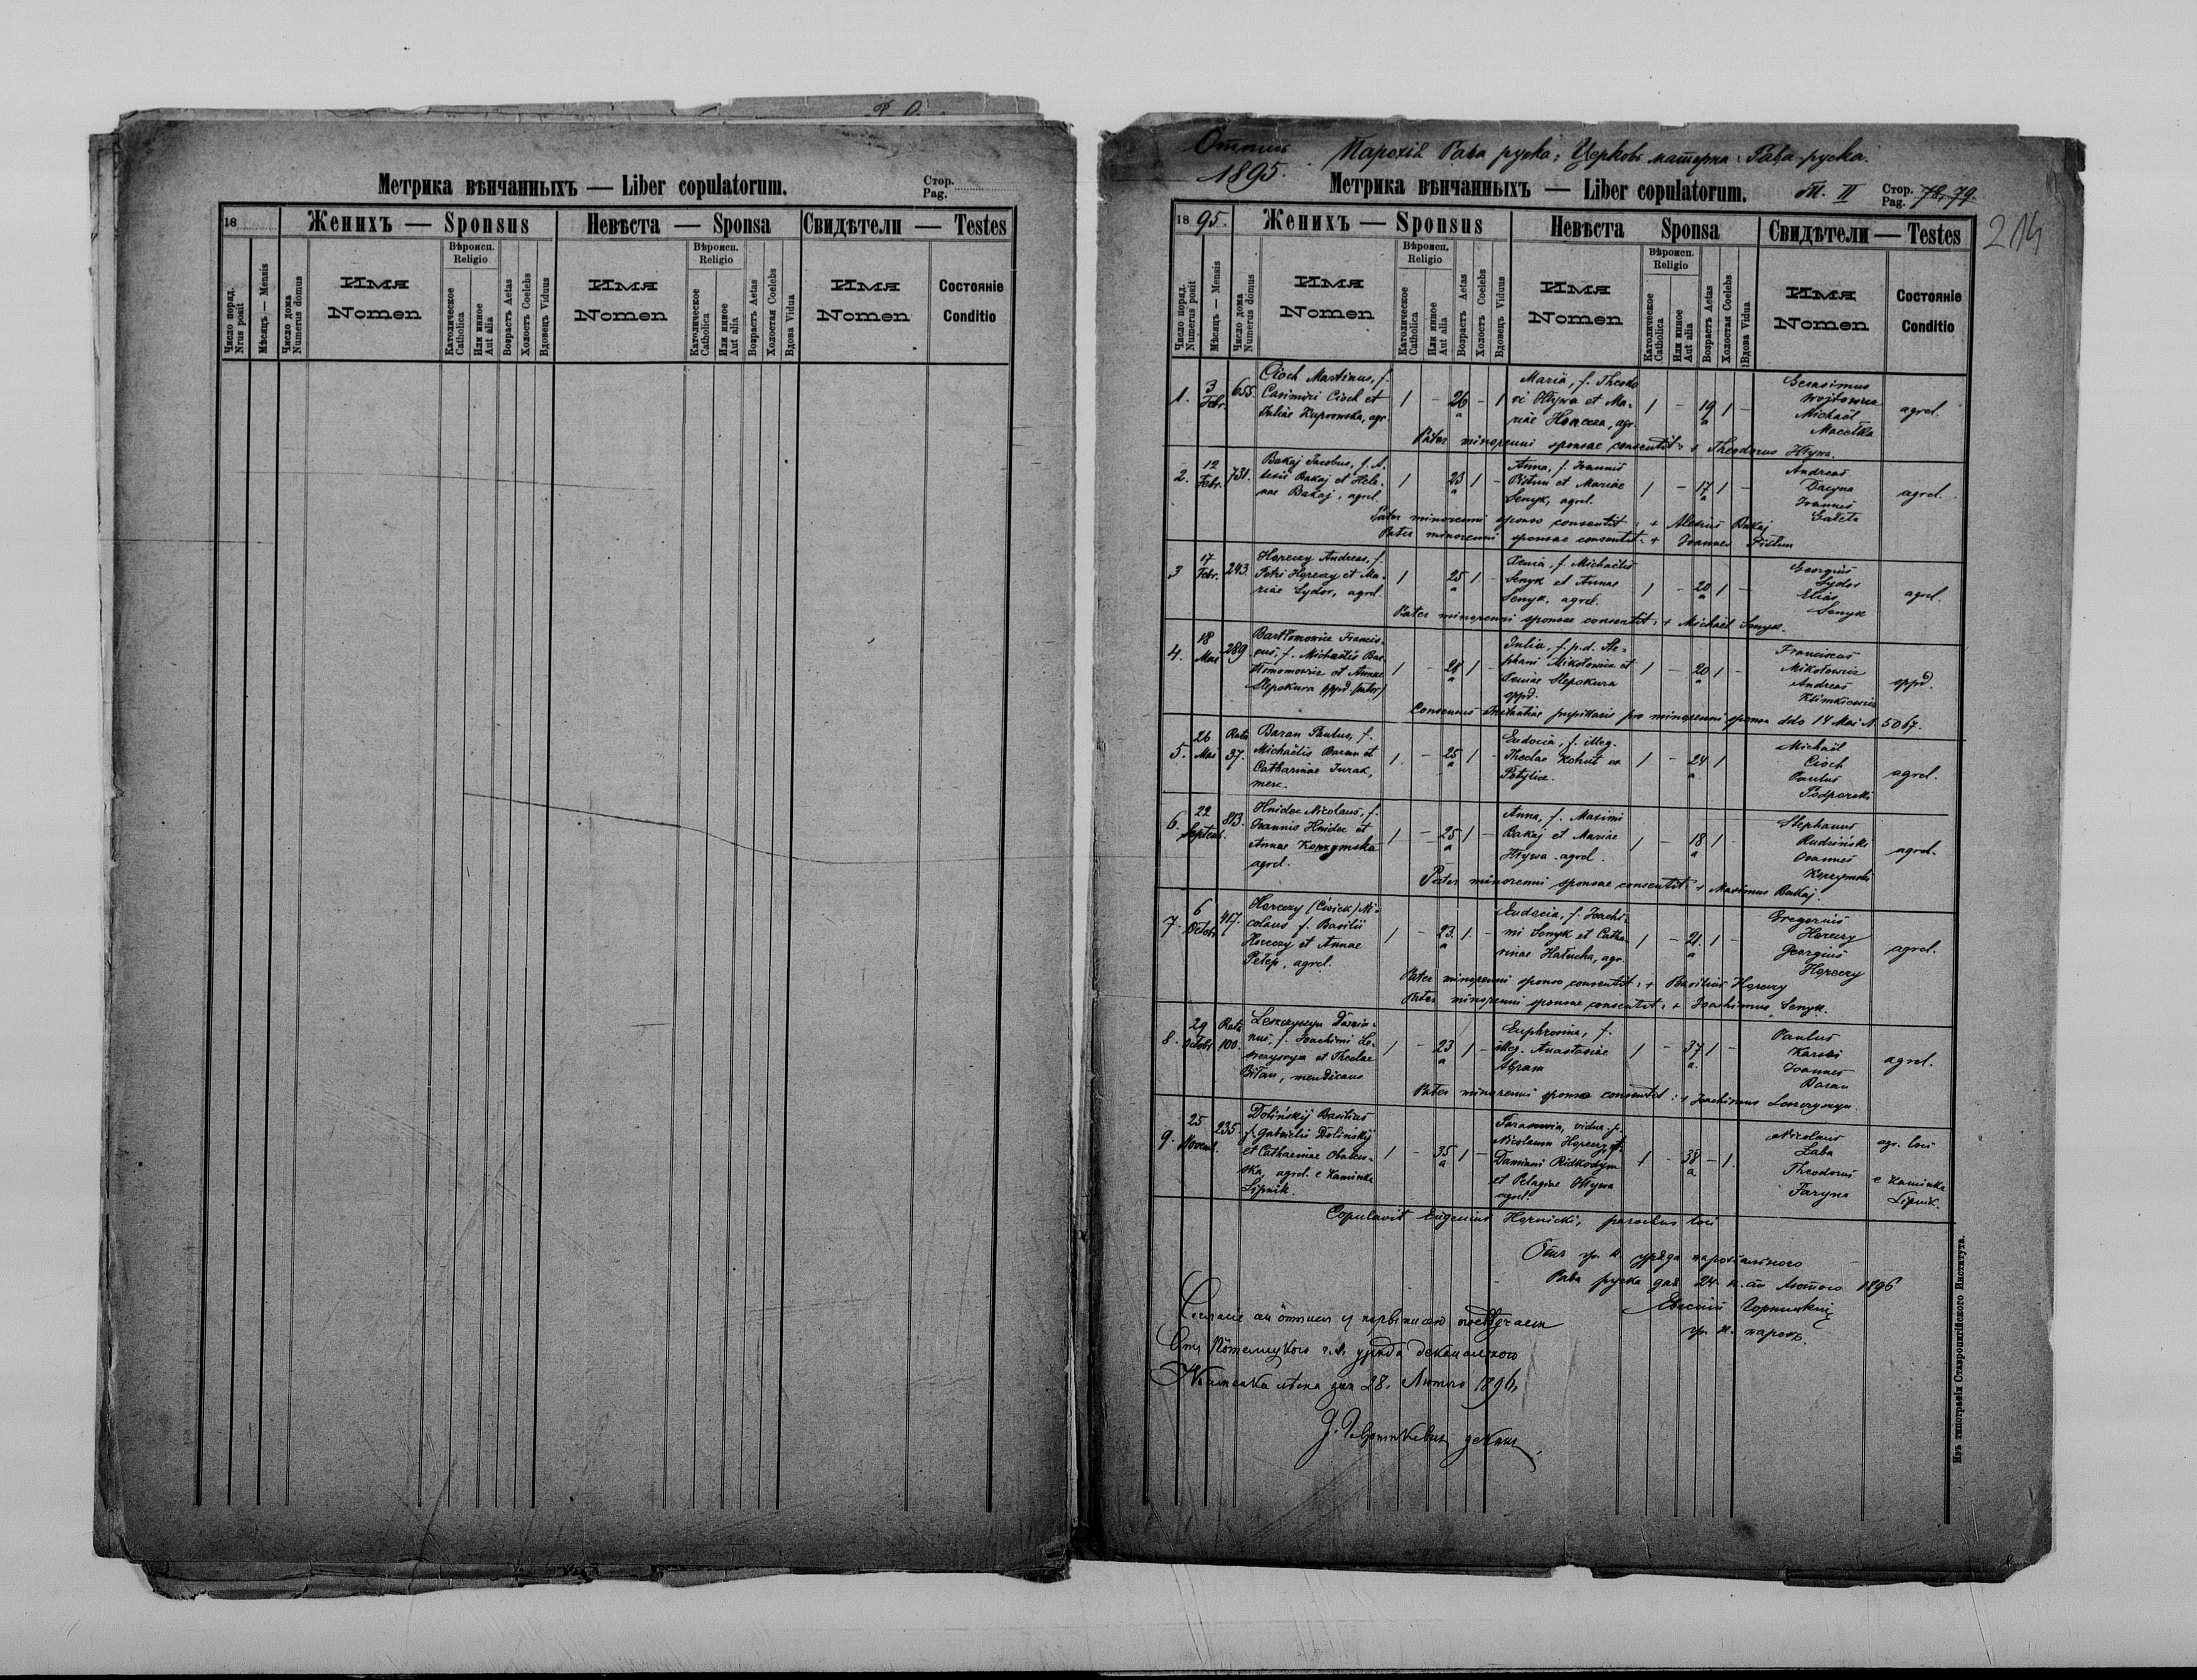 Метрика вѣнчанныхъ — Liber copulatorum.
Стор.
Pag.
18
Женихъ — Sponsus
Невѣста — Sponsa
Свидѣтели — Testes
Число поряд.
Nrus posit
Мѣсяцъ — Mensis
Число дома
Numerus domus
Имя
Nomen
Вѣроисп.
Religio
Католическое
Catholica
Или иное
Aut alia
Возрастъ Aetas
Холостъ Coelebs
Вдовецъ Viduus
Имя
Nomen
Вѣроисп.
Religio
Католическое
Catholica
Или иное
Aut alia
Возрастъ Aetas
Холостая Coelebs
Вдова Vidua
Имя
Nomen
Состояніе
Conditio
Парохія Рава руска; Церковь матерна: Рава руска.
1895.
Метрика вѣнчанныхъ — Liber copulatorum.
Т. II
Стор.
Pag. 78, 79.
214
1895.
Женихъ — Sponsus
Невѣста Sponsa
Свидѣтели — Testes
Число поряд.
Numerus posit
Мѣсяцъ — Mensis
Число дома
Numerus domus
Имя
Nomen
Вѣроисп.
Religio
Католическое
Catholica
Или иное
Aut alia
Возрастъ Aetas
Холостъ Coelebs
Вдовецъ Viduus
Имя
Nomen
Вѣроисп.
Religio
Католическое
Catholica
Или иное
Aut alia
Возрастъ Aetas
Холостая Coelebs
Вдова Vidua
Имя
Nomen
Состояніе
Conditio
1. 3 Febr. 655. Cioch Martinus, f.
Casimiri Cioch et
Juliae
1 – 26 a – 1
Maria, f. Theodo
ri Hływa et Ma-
riae
1 – 19 a 1 –
Gerasimus
Wojtowicz
Michaël
Macełka
agrel.
Pater minorenni sponsae consentit: + Theodorus Hływa.
2. 12 Febr. 731. Bakaj Jacobus, f. A-
lexii Bakaj et Hele-
nae Bakaj, agrel.
1 23 a 1 –
Anna, f. Joannis
Pistun et Mariae
Senyk, agrel.
1 – 17 a 1 –
Andreas
Joannes
agrel.
Pater minorenni sponso consentit: + Alexius Bakaj
Pater minorenni sponsae consentit: + Joannes Pistun
3 17 Febr. 243 Horeczy Andreas, f.
Petri Horeczy et Ma-
riae Sydor, agrel.
1 25 a 1 –
Xenia, f. Michaëlis
Senyk et Annae
Senyk, agrel.
1 – 20 a 1 –
Georgius
Sydor
Elias
Senyk
agrel.
Pater minorenni sponsae consentit: + Michaël Senyk.
4. 18 Mai 289 Bartłomowicz Francis-
cus, f. Michaëlis Bar-
tłomowicz et Annae
Slepokura oppid.
1 – 28 a 1 –
Julia, f. p.d. Ste-
phani Mikołowicz et
Slepokura
oppid.
1 – 20 a 1 –
Franciscus
Mikołowicz
Andreas
Klimkiewicz
oppid.
Consensus Instantiae pupillaris pro minorenni sponsa ddo 14 Mai N. 5067.
5. 26 Mai Rata 37. Baran Paulus, f.
Michaëlis Baran et
Catharinae Jurak,
merc.
1. – 25 a 1 –
Eudocia, f. illeg.
Theclae Kohut ex
Potylicz.
1 – 24 a. 1
Michaël
Cioch
Paulus
agrel.
6. 22 Septem. 813. Hnidec Nicolaus, f.
Joannis Hnidec et
Annae Korzymska
agrel.
1 – 25 a 1 –
Anna, f. Maximi
Bakaj et Mariae
Hływa agrel.
1 – 18 a 1 –
Stephanus
Rudziński
Joannes
Korzymski
agrel.
Pater minorenni sponsae consentit: + Maximus Bakaj.
7. 6 Octobr 417. Horeczy Ni-
colaus f. Basilii
Horeczy et Annae
Petep, agrel.
1 – 23. a 1. –
Eudocia, f. Joachi-
mi Senyk et Catha-
rinae Hałucha, agr.
1 – 21. a 1 –
Gregorius
Horeczy
Georgius
Horeczy
agrel.
Pater minorenni sponso consentit: + Basilius Horeczy
Pater minorenni sponsae consentit: + Joachimus Senyk.
8. 29 Octobr Rata 100. Leszczyszyn Damia-
nus, f. Joachimi Le-
szczyszyn et Theclae
Biłan, mendicans
1 – 23 a 1 –
Euphrosina, f.
illeg. Anastasiae
Abram
1 – 37 a. 1 –
Paulus
Karski
Joannes
Baran
agrel.
Pater minorenni sponso consentit: + Joachimus Leszczyszyn.
9. 25 Novem. 235. Doliński Basilius
f. Gabrielis Doliński
et Catharinae
agrel. e Kamionka
Lipnik.
1 – 35 a 1 –
vidua p.
Nicolaum Horeczy, f.
Damiani
et Pelagiae Hływa
agrel.
1 – 38 a – 1.
Nicolaus
Łaba
Theodorus
Faryna
agr. loci
e Kamionka
Lipnik.
Copulavit Eugenius Hornicki, parochus loci
Отъ гр. к. уряда парохіяльного
Рава руска дня 24. н. ст. Лютого 1896
Евгеній Горницкій
гр. к. парохъ
28. Лютого 1896
деканъ
Изъ типографіи Ставропигійского Института.